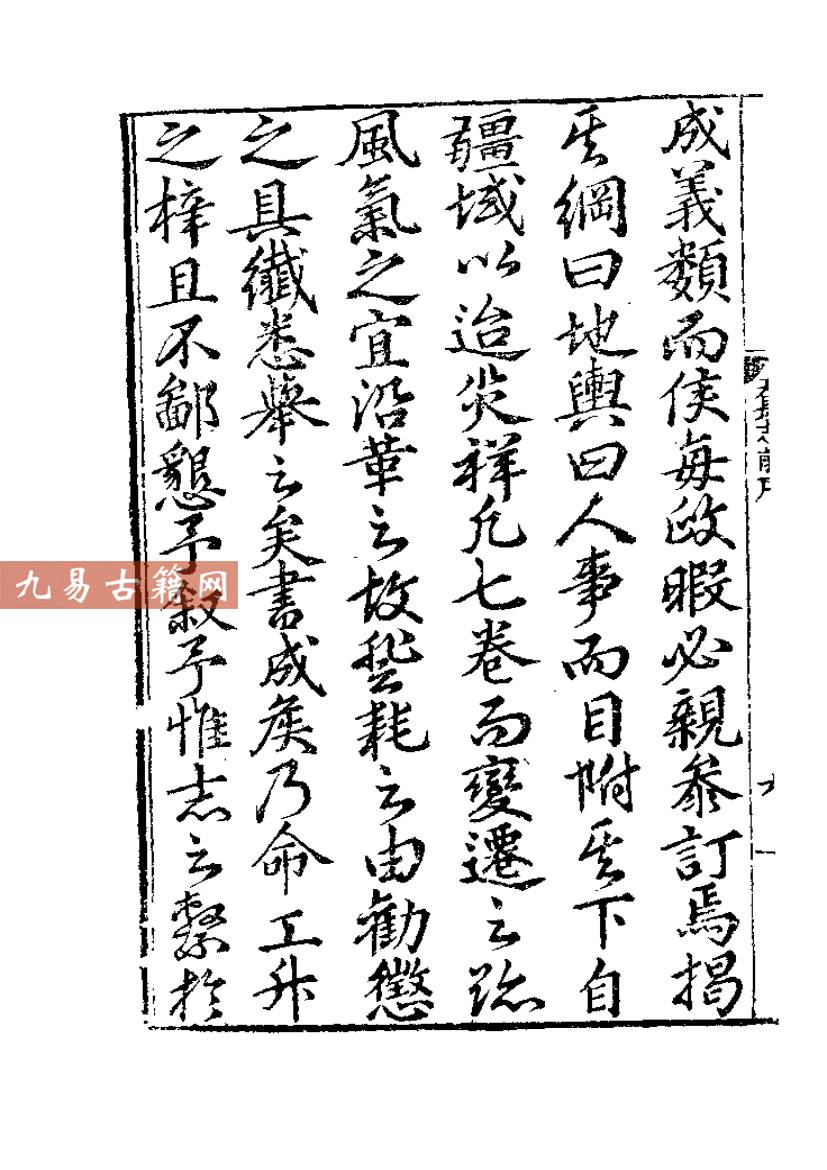 成義類而侯每政暇必親叅訂焉揭
其綱曰地輿曰人事而目附其下自
疆域以迨災祥凡七卷而變遷之跡
風氣之宜沿革之故登耗之由勸懲
之具纖悉舉之矣書成侯乃命工升
之梓且不鄙懇予叙予惟志之繫於
九易古籍网